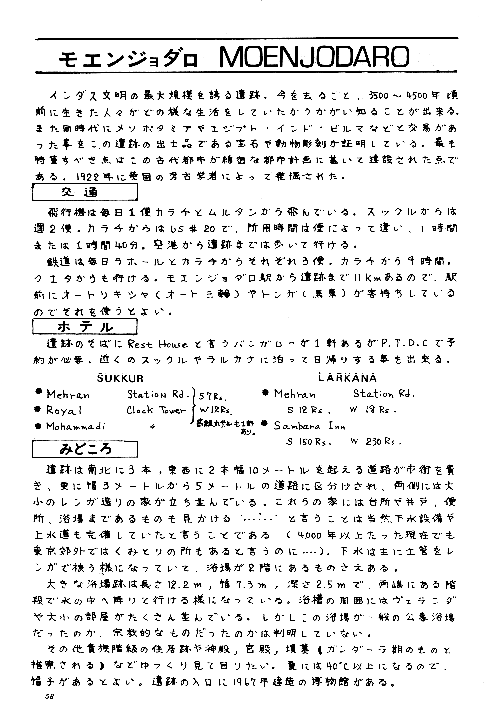 モエンジョダロ MOENJODARO
インダス文明の最大規模を誇る遺跡。今を去ること、3500～4500年頃
前に生きた人々がどの様な生活をしていたかうかがい知ることが出来る。
また同時代にメソポタミアやエジプト・インド・ビルマなどと交易があ
った事をこの遺跡の出土品である宝石や動物彫刻が証明している。最も
特筆すべき点はこの古代都市が精密な都市計画に基いて建設された点で
ある。1922年に英国の考古学者によって発掘された。
交通
飛行機は毎日1便カラチとムルタンから飛んでいる。スックルからは
週2便。カラチからはUS＄20で、所用時間は便によって違い、1時間
または1時間40分。空港から遺跡までは歩いて行ける。
鉄道は毎日ラホールとカラチからそれぞれ3便。カラチから9時間。
クエタからも行ける。モエンジョダロ駅から遺跡まで11kmあるので、駅
前にオートリキシャ(オート三輪)やトンガ(馬車)が客待ちしている
のでそれを使うとよい。
ホテル
遺跡のそばにRest Houseと言うバンガローが1軒あるがP.T.D.Cで予
約が必要。近くのスックルやラルカナに泊って日帰りする事も出来る。
SUKKUR
● Mehran Station Rd.
● Royal Clock Tower
● Mohammadi 〃
S7Rs.
W12Rs.
あり。
LARKANA
● Mehran Station Rd.
S 12 Rs. W 18 Rs.
● Sambara Inn
S 150 Rs. W 230 Rs.
みどころ
遺跡は南北に3本、東西に2本幅10メートルを越える道路が市街を貫
き、更に幅3メートルから5メートルの道路に区分けされ、両側には大
小のレンガ造りの家が立ち並んでいる。これらの家には台所や井戸、便
所、浴場まであるものも見かける……と言うことは当然下水設備や
上水道も完備していたと言うことである (4,000年以上たった現在でも
東京郊外ではくみとりの所もあると言うのに……)。下水は主に土管をレ
ンガで積う様になっていて、浴場が2階にあるものさえある。
大きな浴場跡は長さ12.2m、幅7.3m、深さ2.5mで、両端にある階
段で水の中へ降りて行ける様になっている。浴槽の周囲にはヴェランダ
や大小の部屋がたくさん並んでいる。しかしこの浴場が一般の公衆浴場
だったのか、宗教的なものだったのかは判明していない。
その他貴族階級の住居跡や神殿、宮殿、墳墓(ガンダーラ期のものと
推察される)などゆっくり見て回りたい。夏には40℃以上になるので、
帽子があるとよい。遺跡の入口に1967年建造の博物館がある。
58